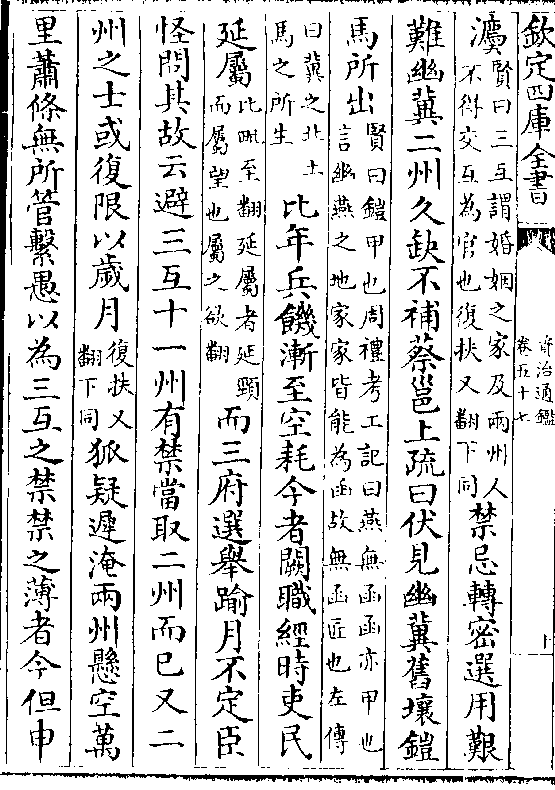 欽定四庫全書
資治通鑑
卷五十七
瀆賢曰三互謂婚姻之家及兩州人
不得交互為官也復扶又翻下同禁忌轉密選用艱
難幽冀二州久缺不補蔡邕上疏曰伏見幽冀舊壤鎧
馬所出賢曰鎧甲也周禮考工記曰燕無函函亦甲也
言幽燕之地家家皆能為函故無函匠也左傳
曰冀之北土
馬之所生比年兵饑漸至空耗今者闕職經時吏民
延屬比毗至翻延屬者延頸
而屬望也屬之欲翻而三府選舉踰月不定臣
怪問其故云避三互十一州有禁當取二州而已又二
州之士或復限以歲月復扶又
翻下同狐疑遲淹兩州懸空萬
里蕭條無所管繫愚以為三互之禁禁之薄者今但申